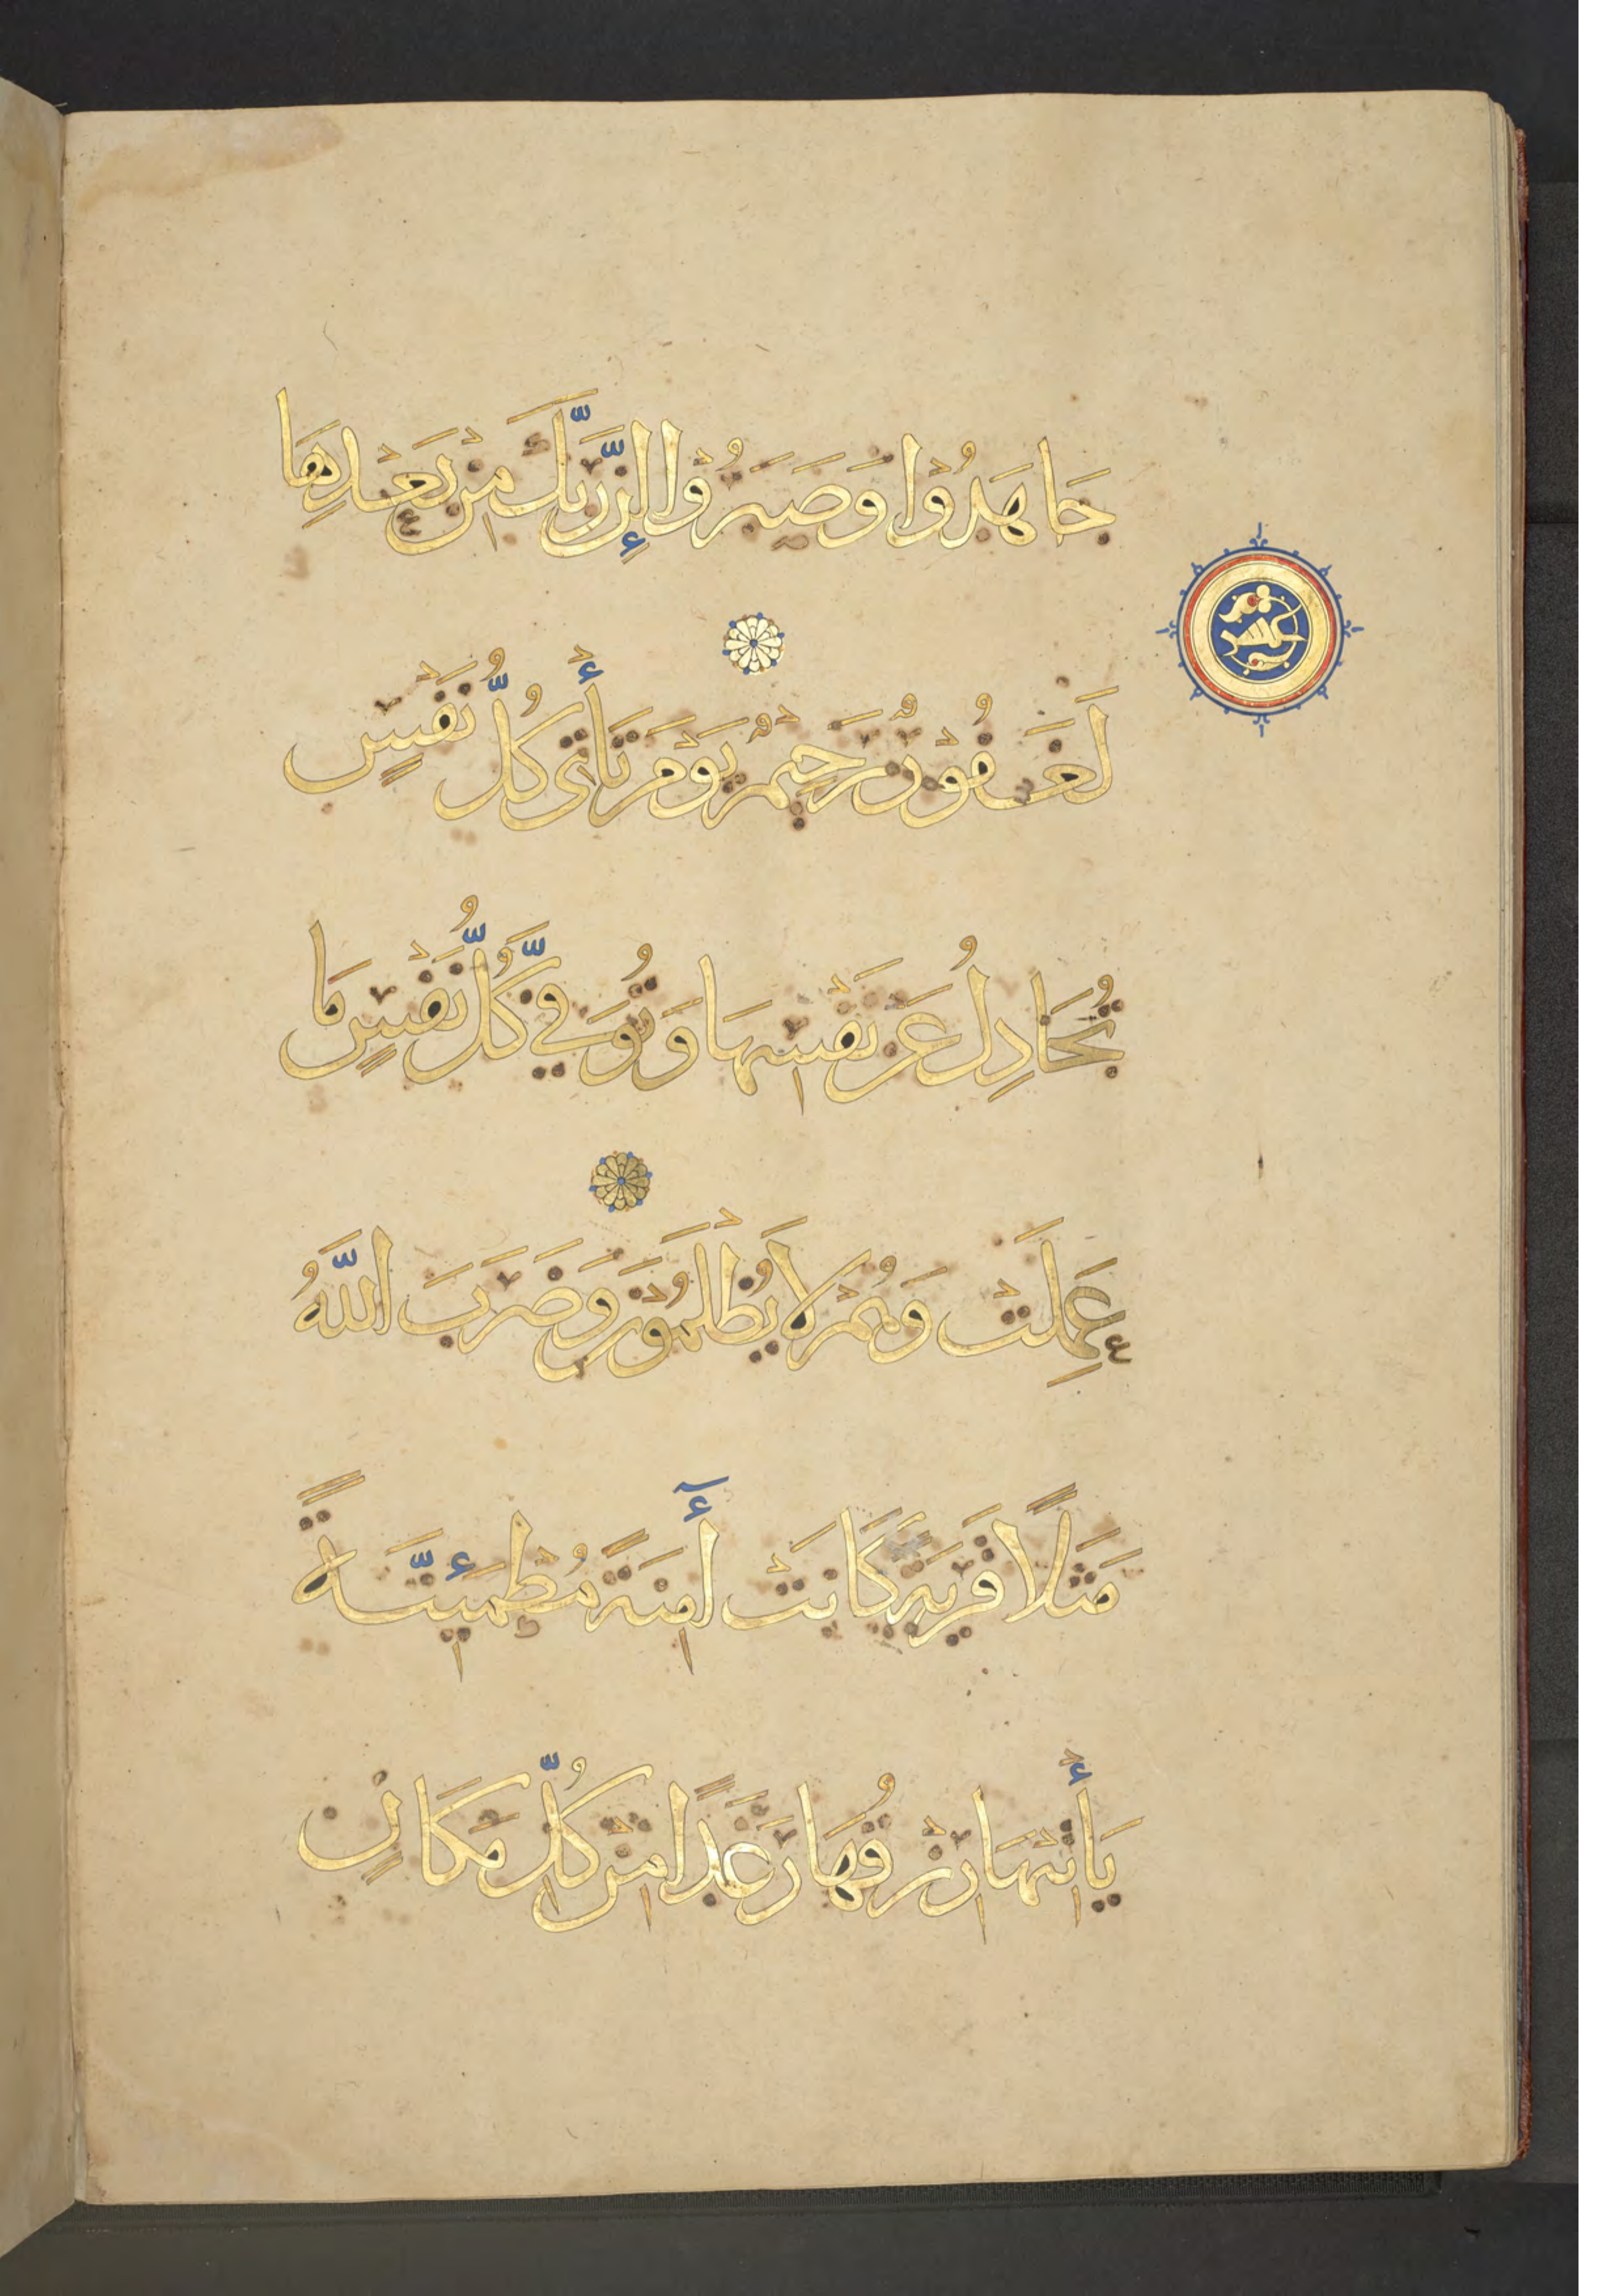 جَاهَدُوْا وَصَبَرُوْا إِنَّ رَبَّكَ مِنْ بَعْدِهَا
لَغَفُوْرٌ رَحِيْمٌ يَوْمَ تَأْتِى كُلُّ نَفْسٍ
تُجَادِلُ عَنْ نَفْسِهَا وَتُوَفَّى كُلُّ نَفْسٍ مَا
عَمِلَتْ وَهُمْ لَا يُظْلَمُوْنَ وَضَرَبَ اللَّهُ
مَثَلًا قَرْيَةً كَانَتْ أٓمِنَةً مُطْمَئِنَّةً
يَأْتِيْهَا رِزْقُهَا رَغَدًا مِنْ كُلِّ مَكَانٍ
عشر